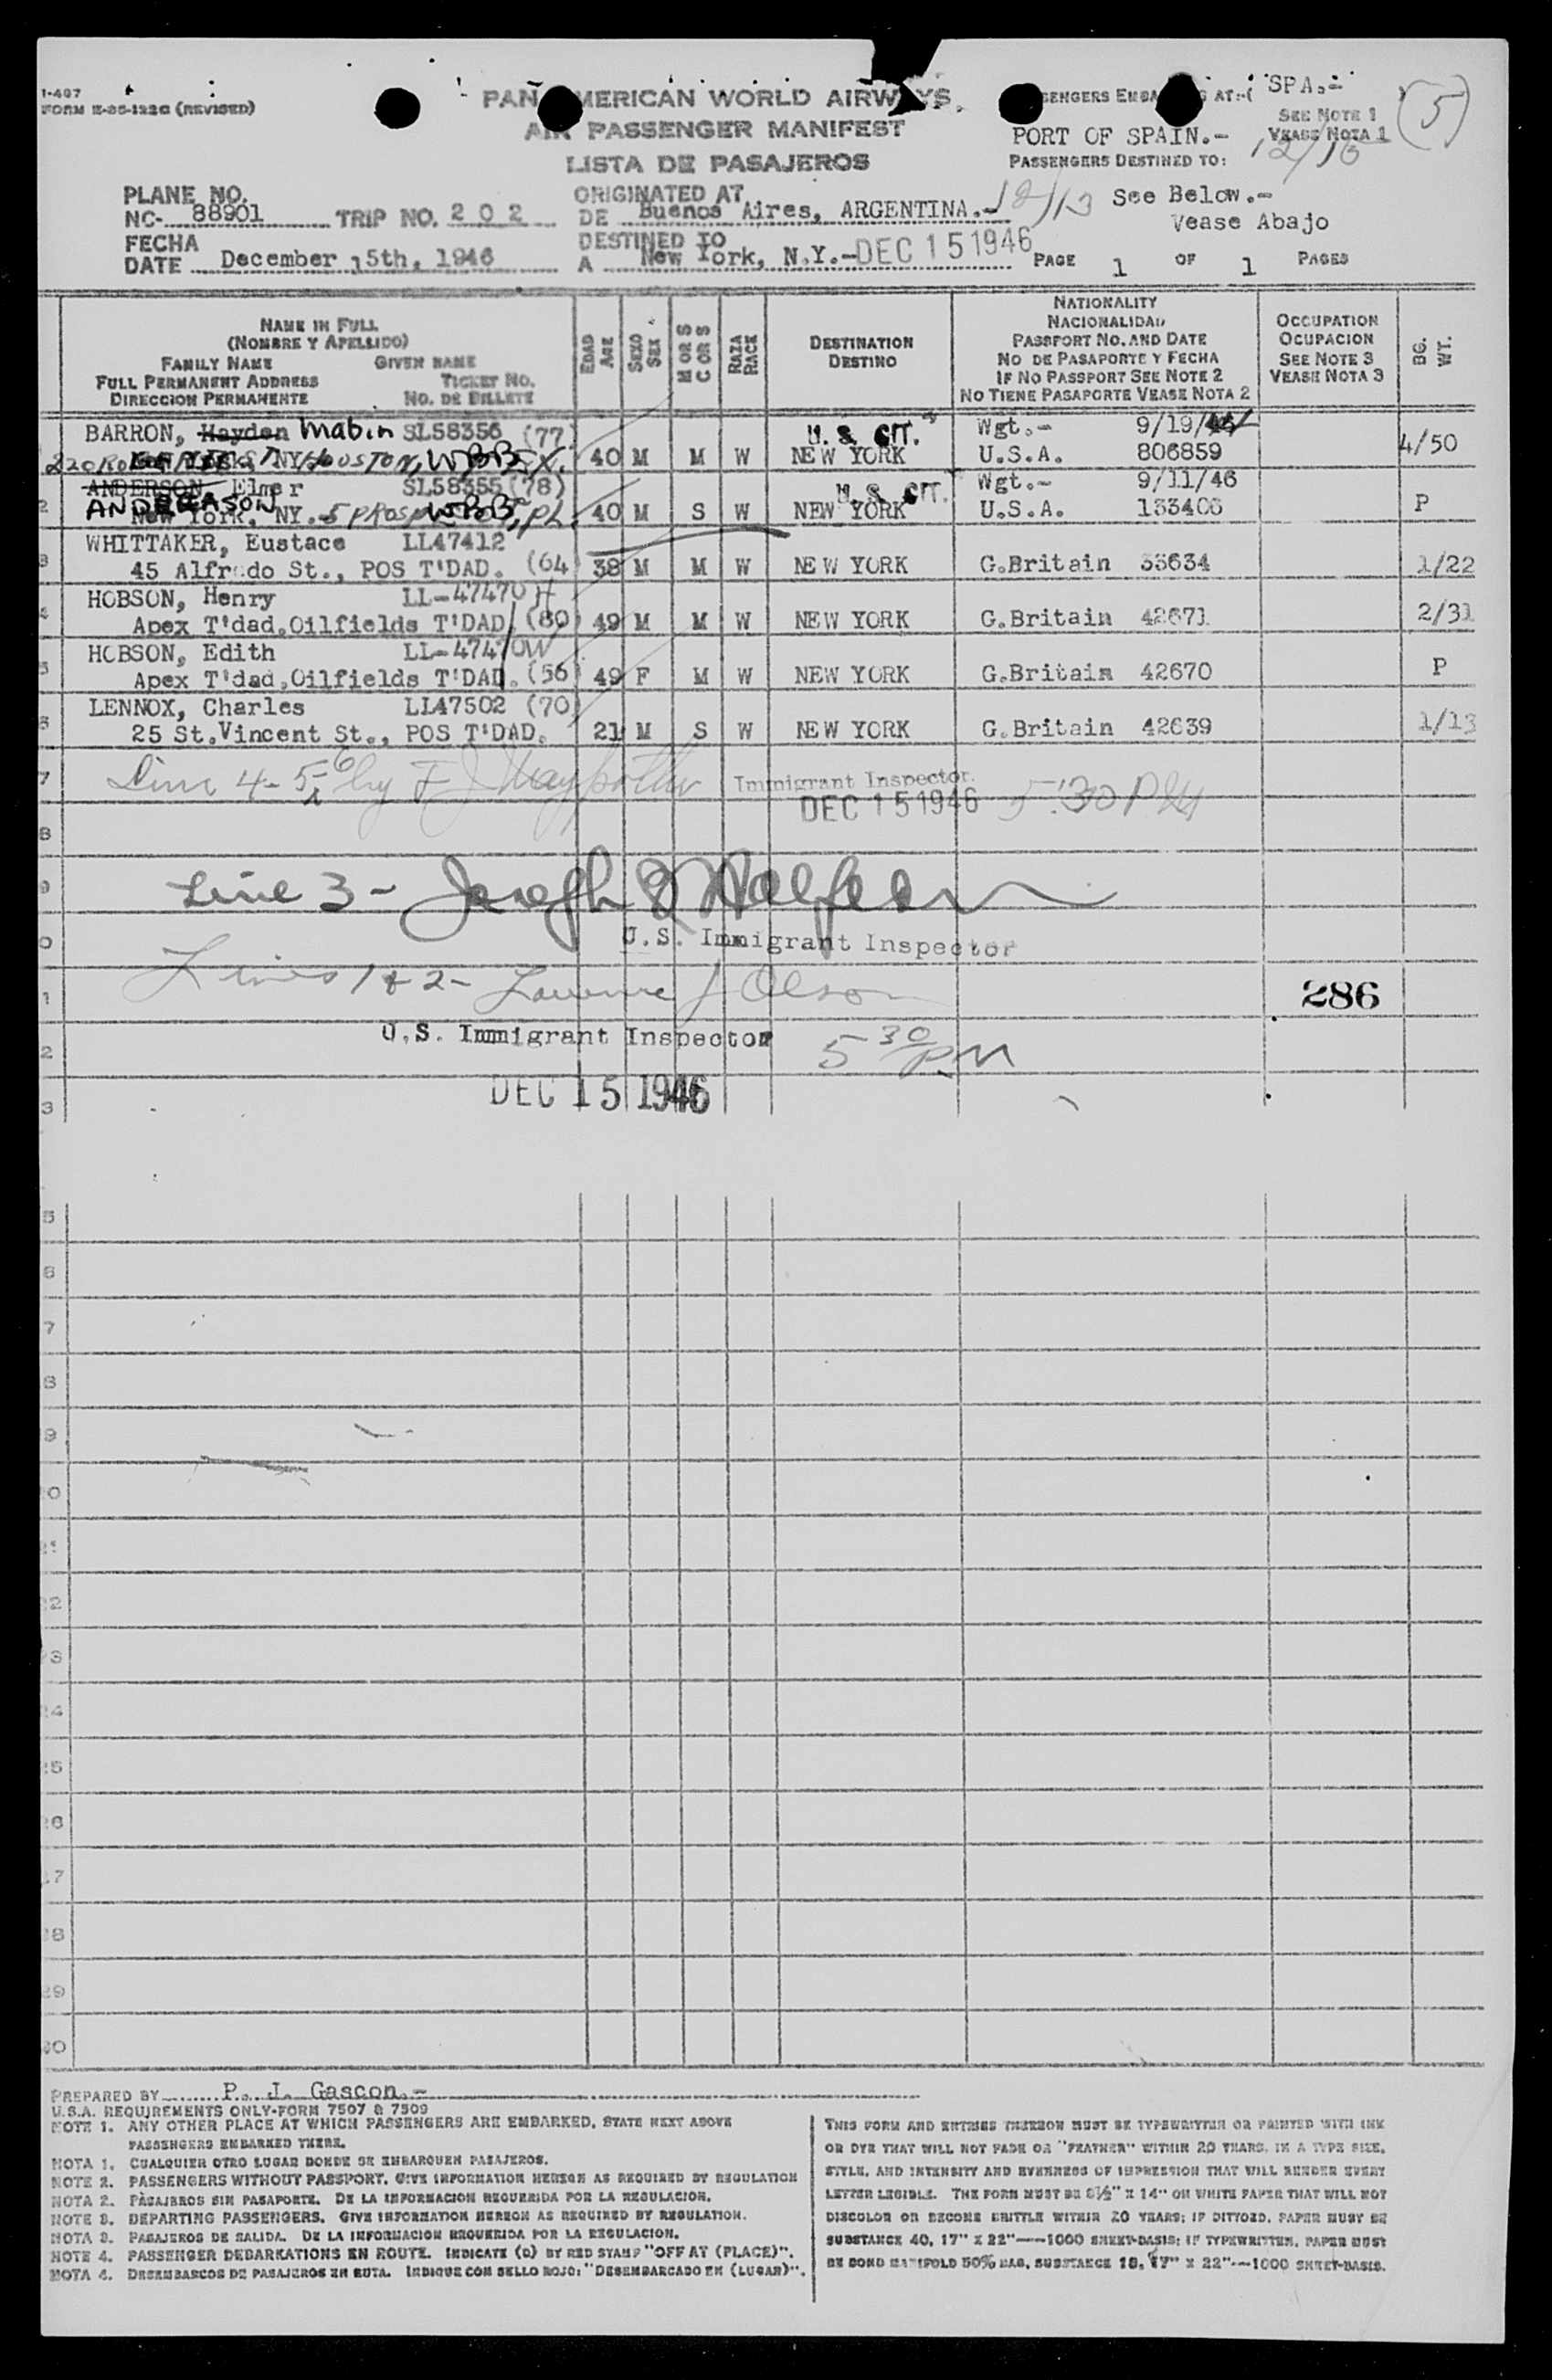 1-407
FORM E-86-122G (REVISED)
PAN AMERICAN WORLD AIRWAYS
AIR PASSENGER MANIFEST
LISTA DE PASAJEROS
SENGERS EMBA G AT:-( SPA.-
SEE NOTE 1
VEASE NOTA 1
(5)
PORT OF SPAIN.-
12/16
PASSENGERS DESTINED TO:
See Below.-
Vease Abajo
PLANE NO.
NC- 88901 TRIP NO. 202
ORIGINATED AT
DE Buenos Aires, ARGENTINA.- 12/13
FECHA
DATE December 15th, 1946
DESTINED TO
A New York, N.Y.- DEC 15 1946
PAGE 1 OF 1 PAGES
NAME IN FULL
(NOMBRE Y APELLIDO)
FAMILY NAME GIVEN NAME
FULL PERMANENT ADDRESS TICKET NO.
DIRECCION PERMANENTE NO. DE BILLETE
EDAD AGE
SEXO SEX
M OR S C OR S
RAZA RACE
DESTINATION
DESTINO
NATIONALITY
NACIONALIDAD
PASSPORT NO. AND DATE
NO DE PASAPORTE Y FECHA
IF NO PASSPORT SEE NOTE 2
NO TIENE PASAPORTE VEASE NOTA 2
OCCUPATION
OCUPACION
SEE NOTE 3
VEASE NOTA 3
BG. WT.
BARRON, Hayden Mabin SL58356 (77) U.S. CIT. Wgt.- 9/19/46
NY HOUSTON, TEX. 40 M M W NEW YORK U.S.A. 806859 4/50
ANDERSON Elmer SL58355 (78) U.S. CIT. Wgt.- 9/11/46
2 ANDREASON New York, NY.- 40 M S W NEW YORK U.S.A. 133406 P
WHITTAKER, Eustace LL47412
3 45 Alfredo St., POS T'DAD. (64) 38 M M W NEW YORK G.Britain 33634 1/22
HOBSON, Henry LL-47470H
4 Apex T'dad.Oilfields T'DAD. (80) 49 M M W NEW YORK G.Britain 42671 2/31
HOBSON, Edith LL-47470W
5 Apex T'dad,Oilfields T'DAD. (56) 49 F M W NEW YORK G.Britain 42670 P
LENNOX, Charles LL47502 (70)
6 25 St.Vincent St., POS T'DAD. 21 M S W NEW YORK G.Britain 42639 1/13
7 Line 4-5-6 by Immigrant Inspector.
DEC 15 1946 5:30 PM
8
9 Line 3- Joseph
0 U.S. Immigrant Inspector
1 Lines 1 & 2- Lawrence J Olson 286
2 U.S. Immigrant Inspector 5 30 PM
3 DEC 15 1946
5
6
7
8
9
0
22
23
24
25
26
27
28
29
30
PREPARED BY P. J. Gascon.-
U.S.A. REQUIREMENTS ONLY-FORM 7507 & 7509
NOTE 1. ANY OTHER PLACE AT WHICH PASSENGERS ARE EMBARKED, STATE NEXT ABOVE
PASSENGERS EMBARKED THERE.
NOTA 1. CUALQUIER OTRO LUGAR DONDE SE EMBARQUEN PASAJEROS.
NOTE 2. PASSENGERS WITHOUT PASSPORT. GIVE INFORMATION HEREON AS REQUIRED BY REGULATION
NOTA 2. PASAJEROS SIN PASAPORTE. DE LA INFORMACION REQUERIDA POR LA REGULACION.
NOTE 3. DEPARTING PASSENGERS. GIVE INFORMATION HEREON AS REQUIRED BY REGULATION.
NOTA 3. PASAJEROS DE SALIDA. DE LA INFORMACION REQUERIDA POR LA REGULACION.
NOTE 4. PASSENGER DEBARKATIONS EN ROUTE. INDICATE (D) BY RED STAMP "OFF AT (PLACE)".
NOTA 4. DESEMBARCOS DE PASAJEROS EN RUTA. INDIQUE CON SELLO ROJO: "DESEMBARCADO EN (LUGAR)".
THIS FORM AND ENTRIES THEREON MUST BE TYPEWRITTEN OR PRINTED WITH INK
OR DYE THAT WILL NOT FADE OR "FEATHER" WITHIN 20 YEARS, IN A TYPE SIZE,
STYLE, AND INTENSITY AND EVENNESS OF IMPRESSION THAT WILL RENDER EVERY
LETTER LEGIBLE. THE FORM MUST BE 8½" X 14" ON WHITE PAPER THAT WILL NOT
DISCOLOR OR BECOME BRITTLE WITHIN 20 YEARS; IF DITTOED, PAPER MUST BE
SUBSTANCE 40, 17" X 22"—1000 SHEET-BASIS; IF TYPEWRITTEN, PAPER MUST
BE BOND MANIFOLD 50% RAG, SUBSTANCE 18, 17" X 22"—1000 SHEET-BASIS.